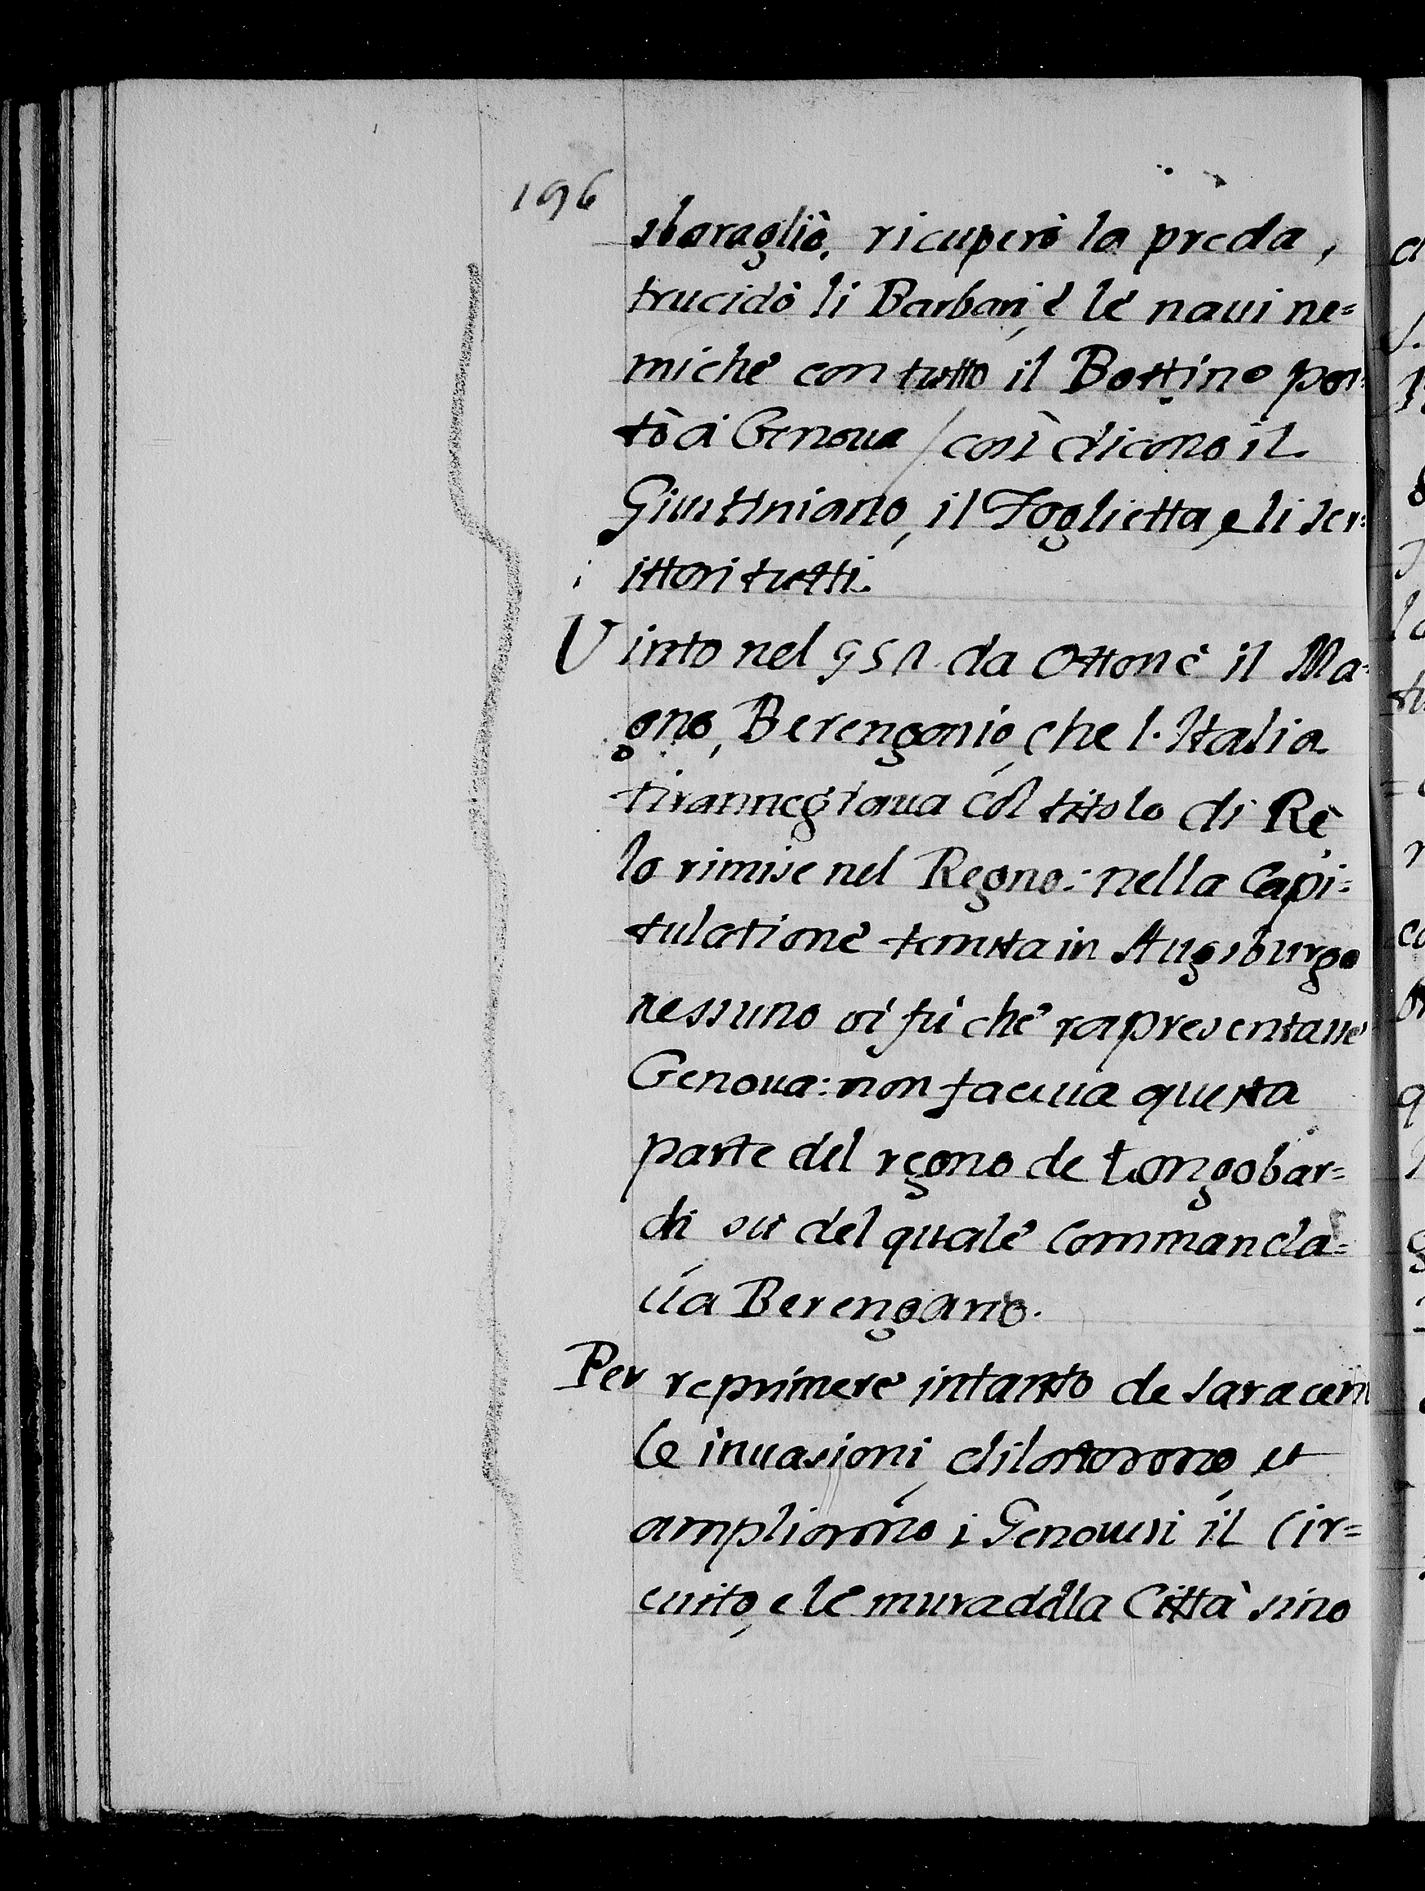 196
sbaragliò, ricuperò la preda,
trucidò li Barbari, è le naui ne=
miche con tutto il Bottino por=
tò a Genoua / così dicono il
Giustiniano, il Foglietta, e li scr=
ittori tutti.
Vinto nel 951 da Ottone il Ma=
gno, Berengario, che l'Italia
tirannegiaua col titolo di Rè,
lo rimise nel Regno: nella Capi=
tulatione tenuta in Augsburgo
nessuno vi fù che rapresentasse
Genoua: non faceua questa
parte del regno de Longobar=
di sù del quale commanda=
ua Berengario.
Per reprimere intanto de Saraceni
le inuasioni, dilatorono, et
ampliorono i Genouesi il Cir=
cuito, e le mura della Città sino